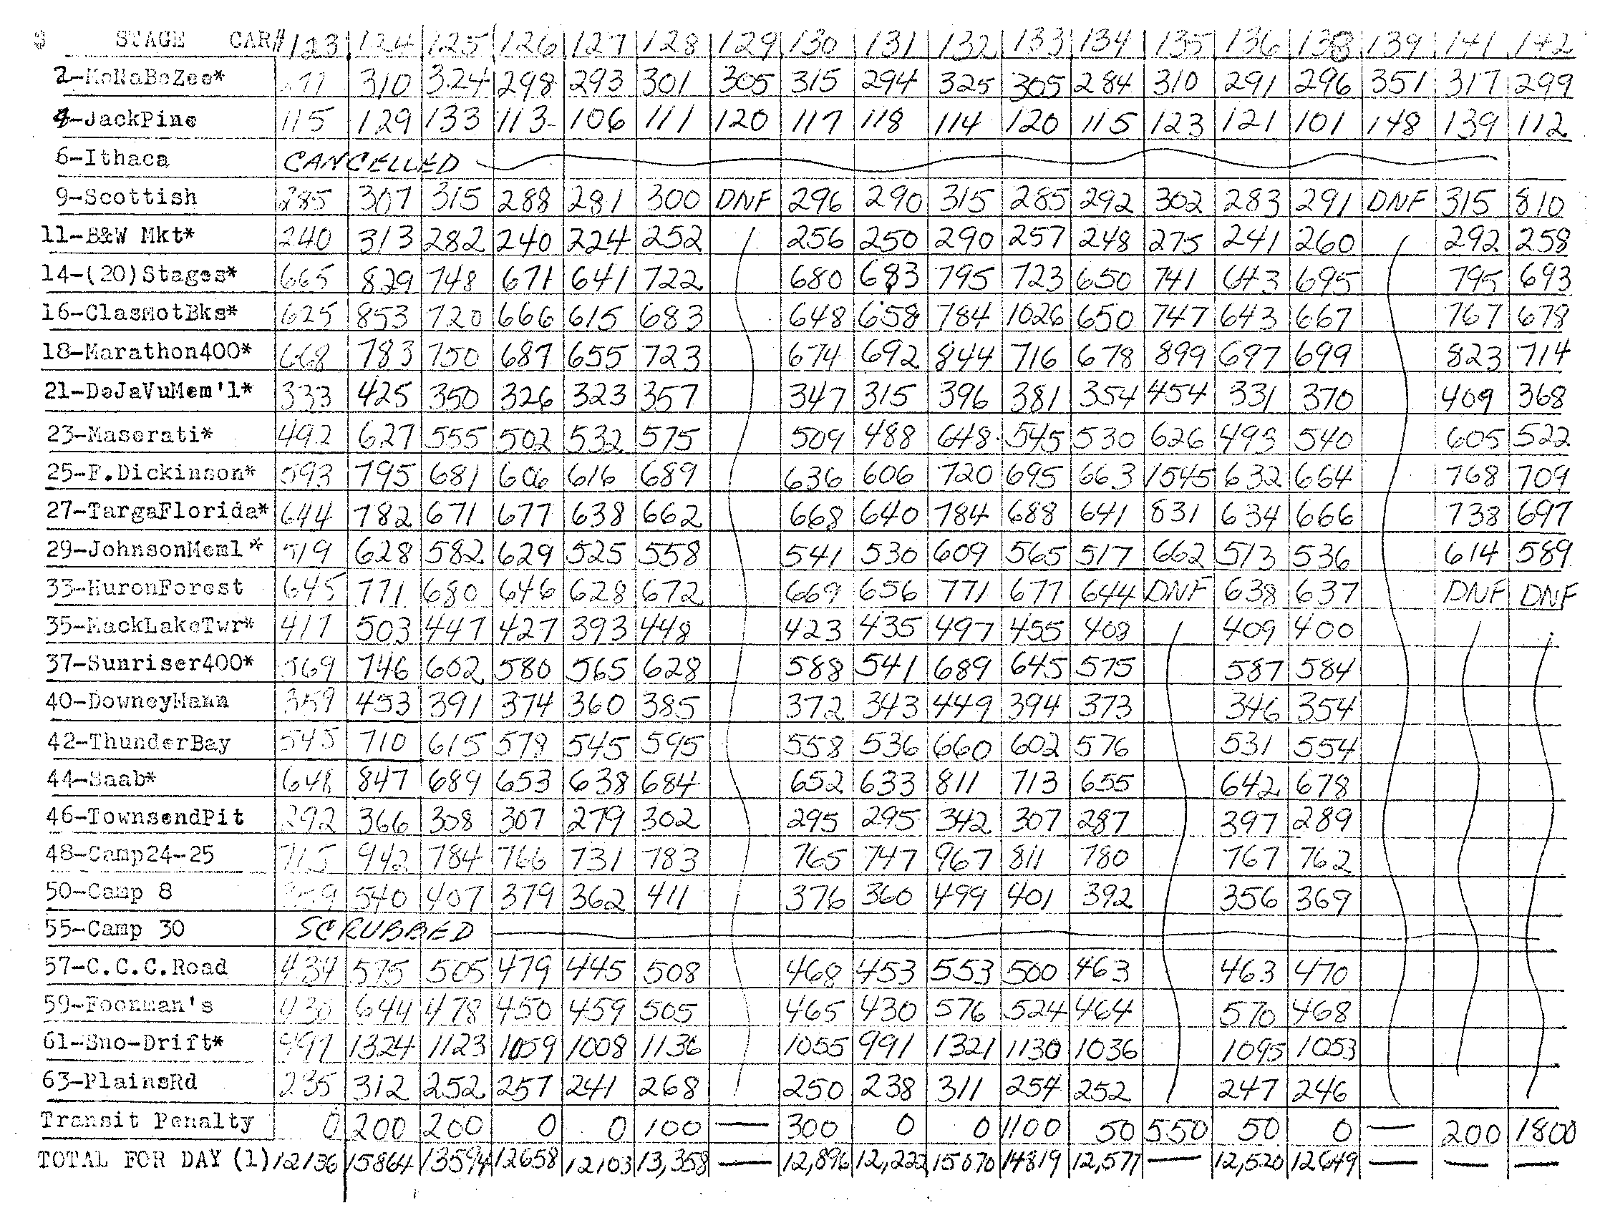 $ STAGE CAR# 123 124 125 126 127 128 129 130 131 132 133 134 135 136 138 139 141 142
2-NaNaBoZoo* 310 324 298 293 301 305 315 294 325 305 284 310 291 296 351 317 299
4-JackPine 115 129 133 113 106 111 120 117 118 114 120 115 123 121 101 148 139 112
6-Ithaca CANCELLED
9-Scottish 285 307 315 288 281 300 DNF 296 290 315 285 292 302 283 291 DNF 315 810
11-B&W Mkt* 240 313 282 240 224 252 256 250 290 257 248 275 241 260 292 258
14-(20)Stages* 665 829 748 671 641 722 680 683 795 723 650 741 643 695 795 693
16-ClasMotBks* 625 853 720 666 615 683 648 658 784 1026 650 747 643 667 767 678
18-Marathon400* 668 783 750 687 655 723 674 692 844 716 678 899 697 699 823 714
21-DeJaVuMem'l* 333 425 350 326 323 357 347 315 396 381 354 454 331 370 409 368
23-Maserati* 492 627 555 502 532 575 509 488 648 545 530 626 493 540 605 522
25-F.Dickinson* 593 795 681 606 616 689 636 606 720 695 663 1545 632 664 768 709
27-TargaFlorida* 644 782 671 677 638 662 668 640 784 688 641 831 634 666 738 697
29-JohnsonMeml* 519 628 582 629 525 558 541 530 609 565 517 662 513 536 614 589
33-HuronForest 645 771 680 646 628 672 669 656 771 677 644 DNF 638 637 DNF DNF
35-MackLakeTwr* 417 503 447 427 393 448 423 435 497 455 408 409 400
37-Sunriser400* 569 746 602 580 565 628 588 541 689 645 575 587 584
40-DowneyMann 359 453 391 374 360 385 372 343 449 394 373 346 354
42-ThunderBay 545 710 615 578 545 595 558 536 660 602 576 531 554
44-Saab* 648 847 689 653 638 684 652 633 811 713 655 642 678
46-TownsendPit 292 366 308 307 279 302 295 295 342 307 287 397 289
48-Camp24-25 715 942 784 766 731 783 765 747 967 811 780 767 762
50-Camp 8 540 407 379 362 411 376 360 499 401 392 356 369
55-Camp 30 SCRUBBED
57-C.C.C.Road 434 575 505 479 445 508 468 453 553 500 463 463 470
59-Foorman's 430 644 478 450 459 505 465 430 576 524 464 570 468
61-Sno-Drift* 997 1324 1123 1059 1008 1136 1055 991 1321 1130 1036 1095 1053
63-PlainsRd 235 312 252 257 241 268 250 238 311 254 252 247 246
Transit Penalty 0 200 200 0 0 100 — 300 0 0 1100 50 550 50 0 — 200 1800
TOTAL FOR DAY (1) 12136 15864 13594 12658 12103 13,358 — 12,896 12,222 15070 14819 12,577 — 12,520 12649 — — —